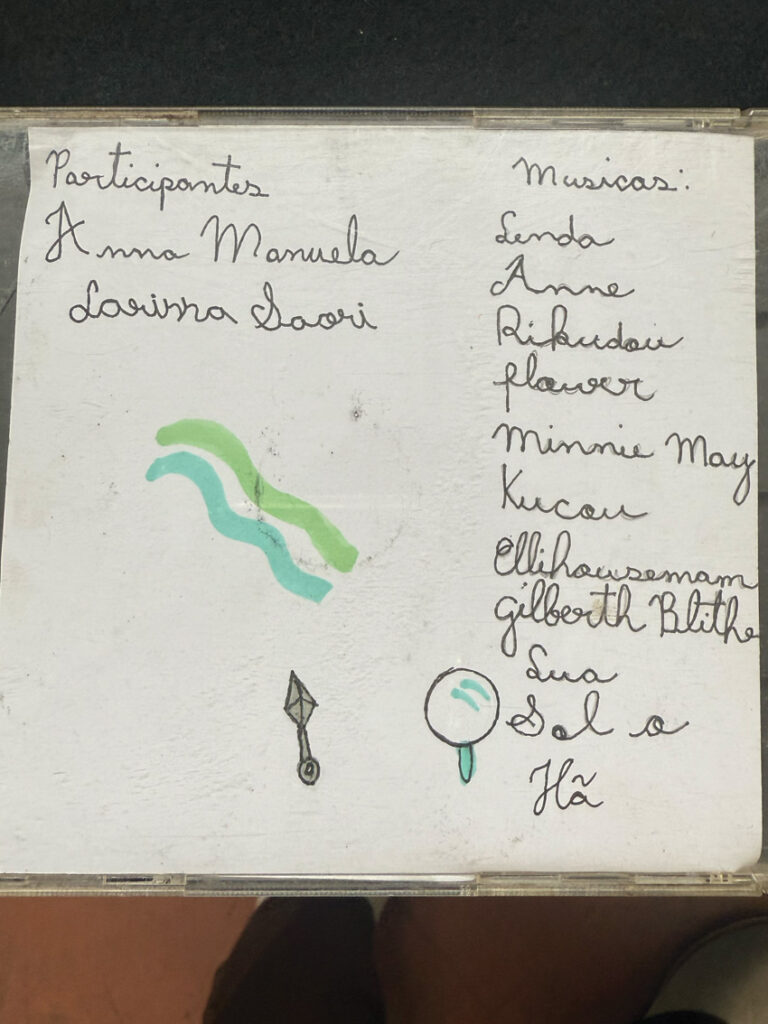 Participantes
Anna Manuela
Larissa Saori
Musicas:
Lenda
Anne
Rikudou
flower
Minnie May
Kucou
Ellihousemam
Gilberth Blithe
Lua
Sol a
Hã